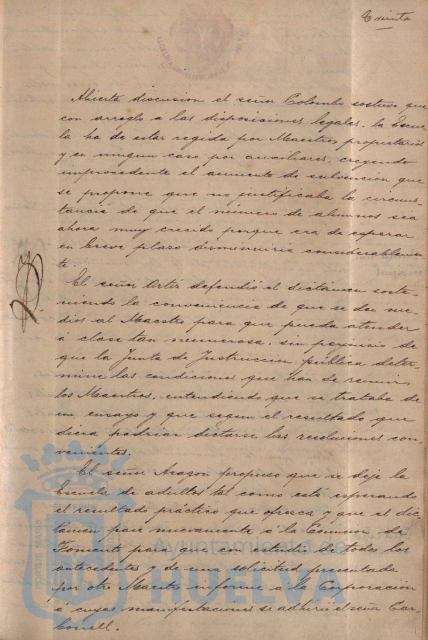 Treinta
Abierta discusion el señor Colombo sostuvo que
con arreglo a las disposiciones legales la Escue
la ha de estar regida por Maestros propietarios
y en ningun caso por auxiliares, creyendo
improcedente el aumento de subvencion que
se propone que no justificaba la circuns
tancia de que el número de alumnos sea
ahora muy crecido porque era de esperar
en breve plazo disminuiria considerablemen
te.
El señor Ortés defendió el dictámen soste
niendo la conveniencia de que se den me
dios al Maestro para que pueda atender
á clase tan numerosa, sin perjuicio de
que la Junta de Instruccion pública deter
mine las condiciones que han de reunir
los Maestros, entendiendo que se trataba de
un ensayo y que segun el resultado que
diera podrian dictarse las resoluciones con
venientes.
El señor Aragon propuso que se deje la
Escuela de adultos tal como está esperando
el resultado práctico que ofrezca y que el dic
támen pase nuevamente a la Comision de
Fomento para que con estudio de todos los
antecedentes y de una solicitud presentada
por otro Maestro informe a la Corporacion
á cuyas manifestaciones se adhirió el señor Car
bonell.
Ayuntamiento de
HUELVA